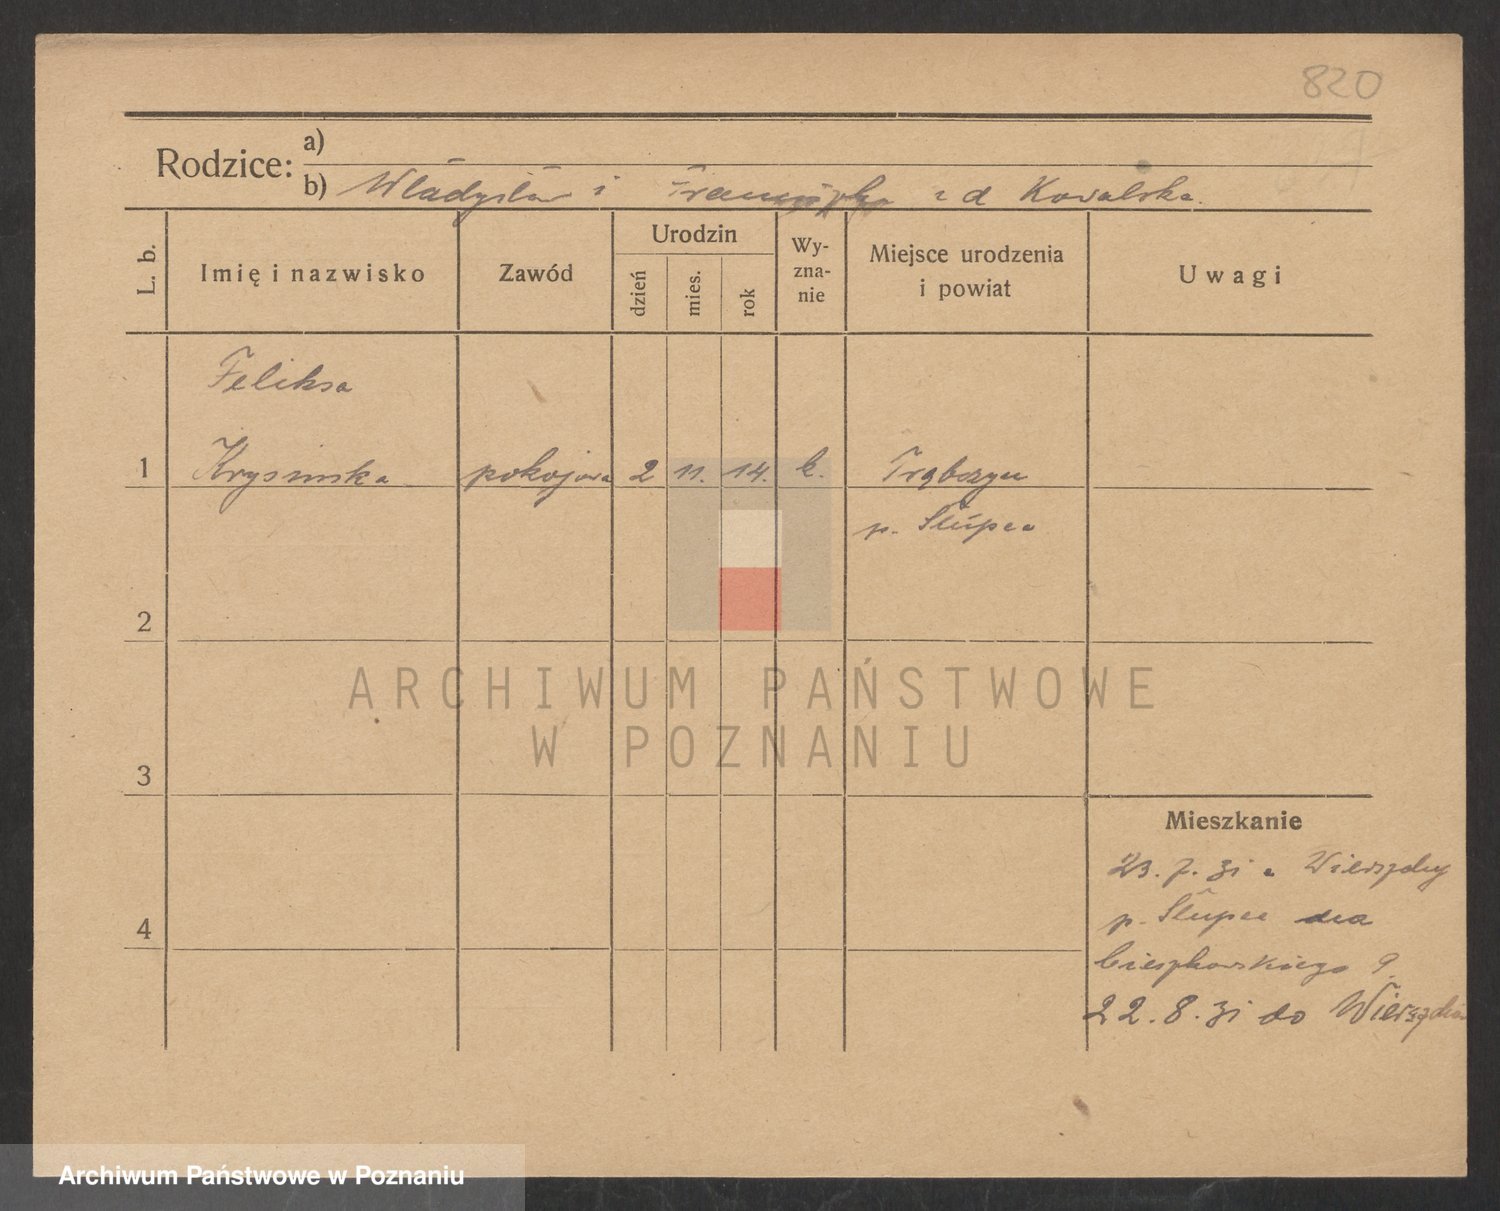 820
Rodzice:
a)
b) Władysław i Franciszka z d Kowalska.
L. b.
Imię i nazwisko
Zawód
Urodzin
dzień
mies.
rok
Wy-
zna-
nie
Miejsce urodzenia
i powiat
Uwagi
Feliksa
1 Krysińska pokojowa 2 11. 14. k. Trąbczyn
p. Słupca
2
3
4
Mieszkanie
23. 7. 31 z
p. Słupca na
Cieszkowskiego 9
22. 8. 31 do
ARCHIWUM PAŃSTWOWE
W POZNANIU
Archiwum Państwowe w Poznaniu